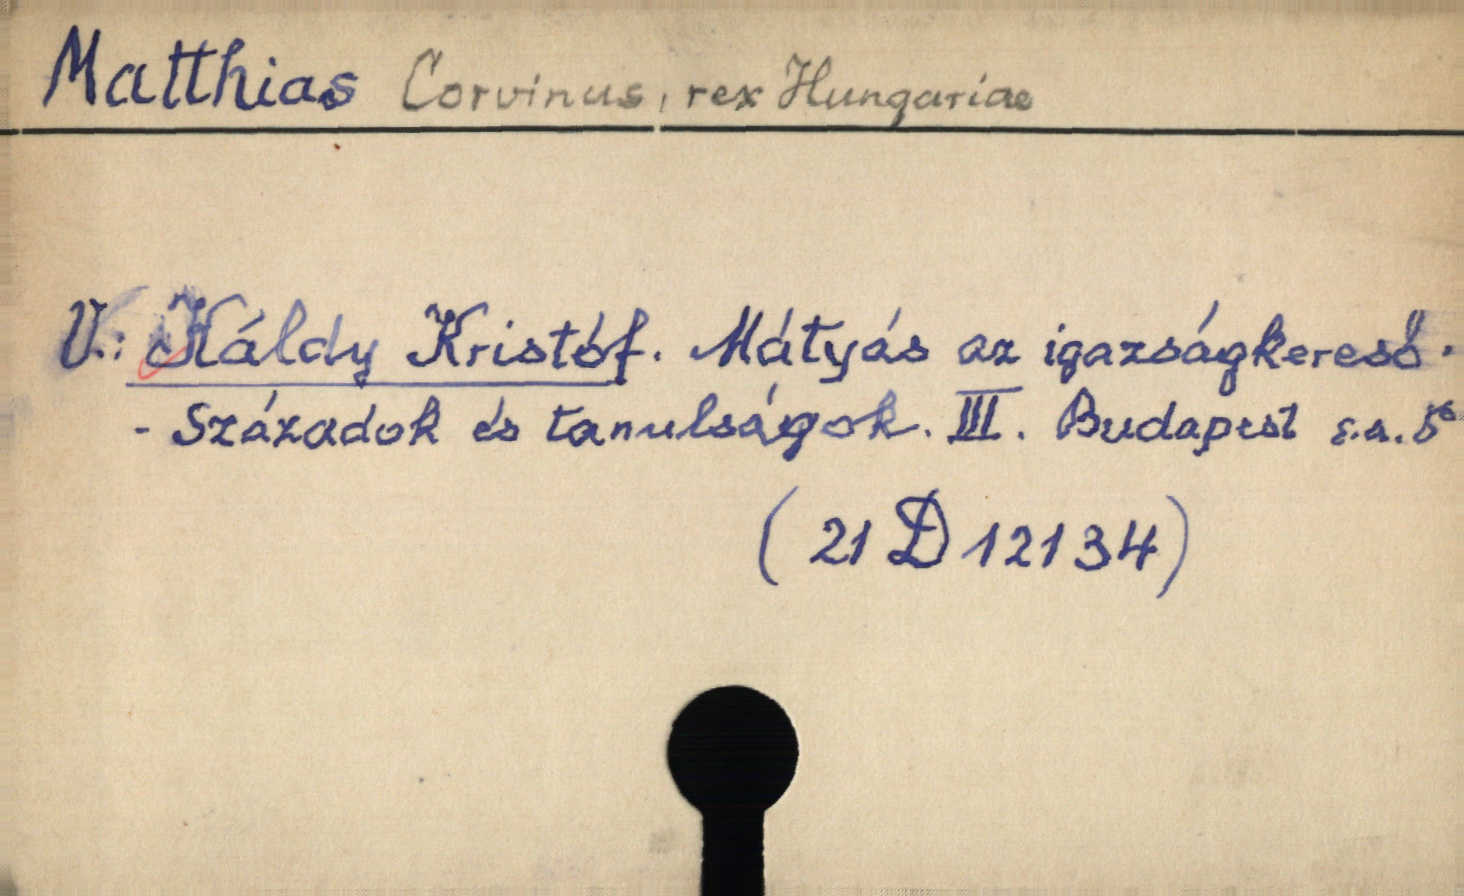 Matthias Corvinus, rex Hungariae
V.: Káldy Kristóf. Mátyás az igazságkereső.
- Századok és tanulságok. III. Budapest s.a. 8°
(21 D 12134)